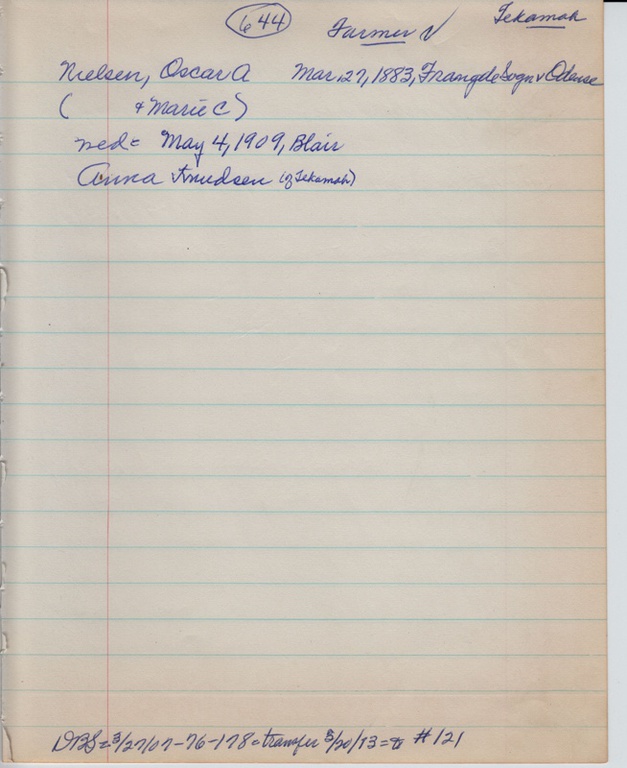 644 Farmer √ Tekamah
Nielsen, Oscar A Mar. 27, 1883, Frangde Sogn v Odense
( & Marie C)
med= May 4, 1909, Blair
Anna Knudsen (of Tekamah)
DBS= 3/27/07-76-178= transfer 3/20/13= # 121